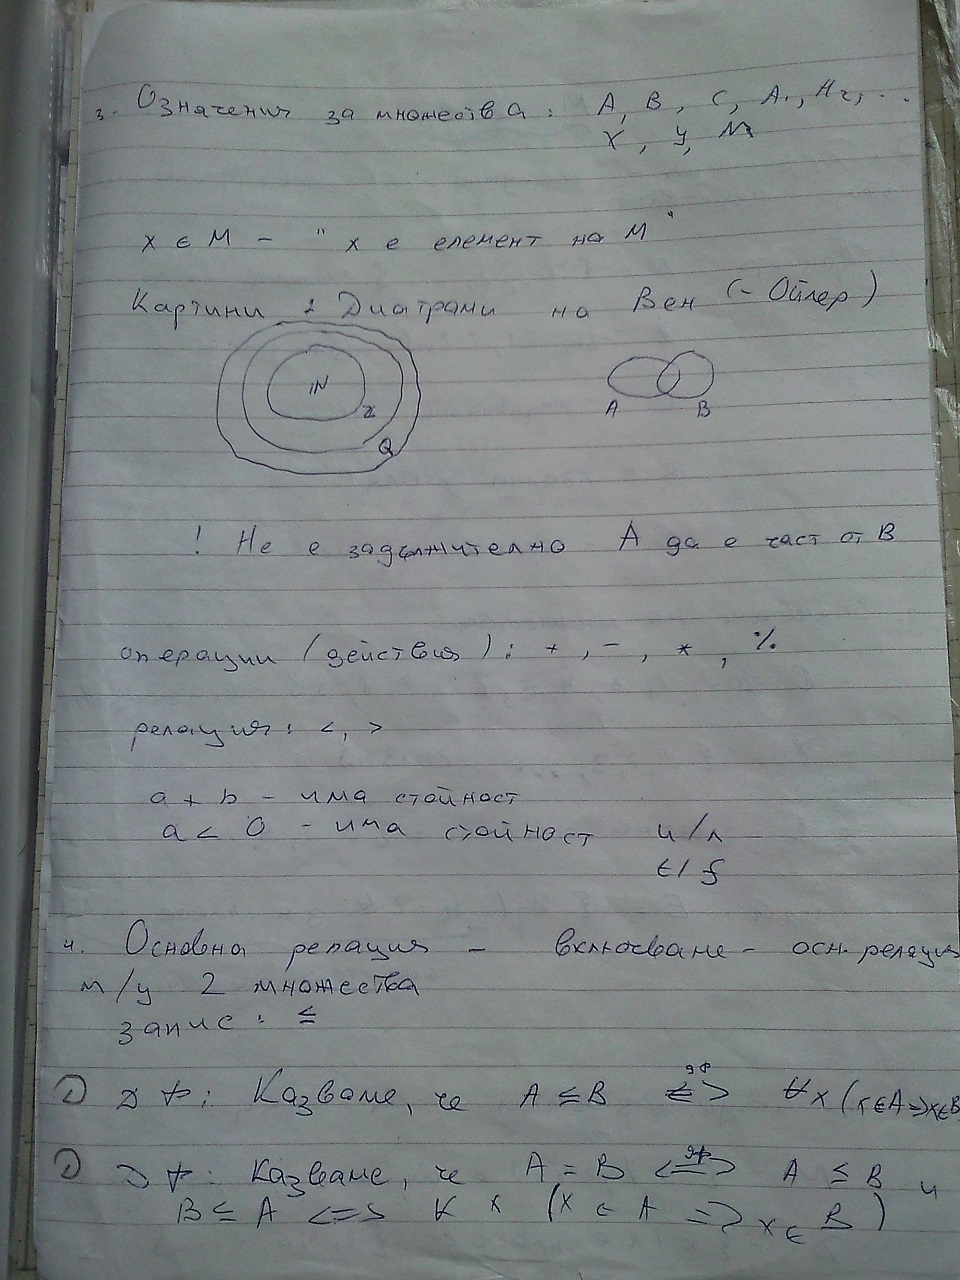 3. Означения за множества: A, B, C, A₁, A₂, ...
X, Y, M
x ∈ M - "x е елемент на M"
Картини: Диаграми на Вен (- Ойлер)
ℕ
ℤ
Q
A B
! Не е задължително A да е част от B
операции (действия): +, -, *, %
релация: <, >
a + b - има стойност
a < 0 - има стойност и/л
t/f
4. Основна релация - включване - осн. релация
м/у 2 множества
запис: ≤
Дф: Казваме, че A ≤ B <=> дф ∀x (x∈A => x∈B
Дф: Казваме, че A = B <=> дф A ≤ B и
B ≤ A <=> ∀ x (x ∈ A => x ∈ B)